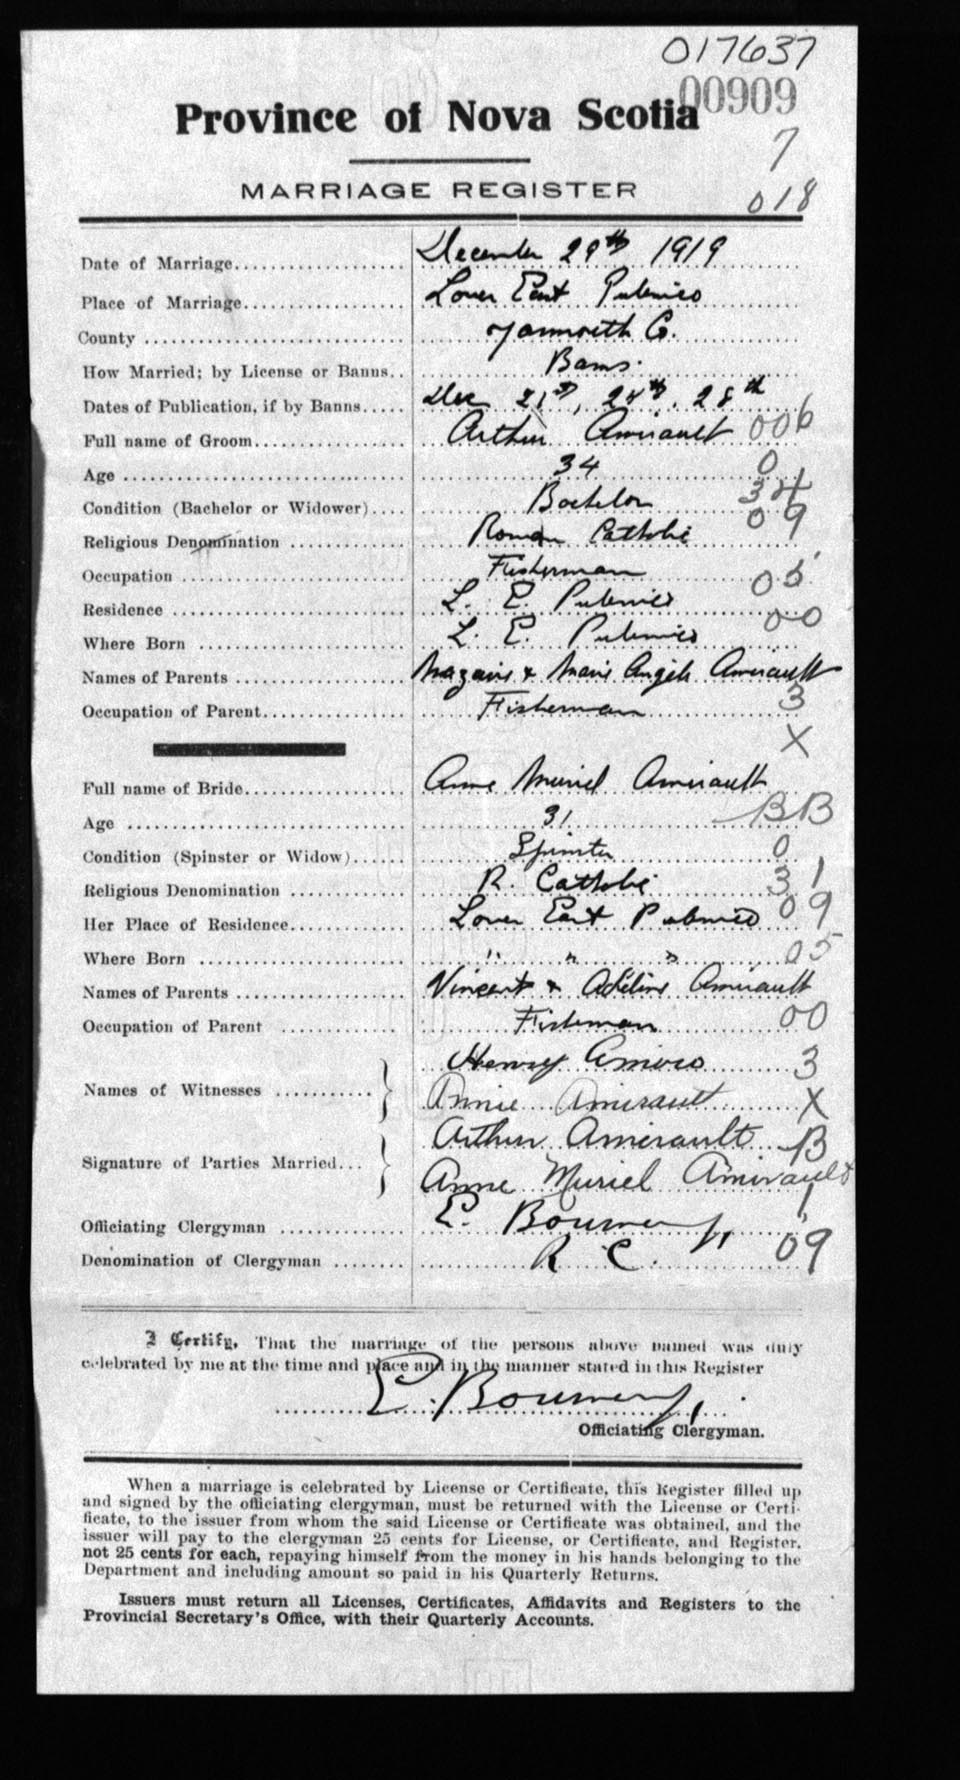 017637
00909
Province of Nova Scotia
7
MARRIAGE REGISTER
018
Date of Marriage.................... December 29th 1919
Place of Marriage.................... Lower East Pubnico
County .................... Yarmouth Co.
How Married; by License or Banns.. Banns.
Dates of Publication, if by Banns..... Dec 21st, 24th. 28th
Full name of Groom.................... Arthur Amirault 006
Age .................... 34 0
Condition (Bachelor or Widower).... Bachelor 34
Religious Denomination .................... Roman Catholic 09
Occupation .................... Fisherman
Residence .................... L. E. Pubnico 05
Where Born .................... L. E. Pubnico 00
Names of Parents .................... & Marie Angele Amirault
Occupation of Parent.................... Fisherman 3
X
Full name of Bride.................... Anne Muriel Amirault
Age .................... 31 BB
Condition (Spinster or Widow)...... Spinster 0
Religious Denomination .................... R. Catholic 31
Her Place of Residence.................... Lower East Pubnico 09
Where Born .................... " " " 05
Names of Parents .................... Vincent & Adéline Amirault
Occupation of Parent .................... Fisherman 00
Henry Amiro 3
Names of Witnesses ...........
Annie Amirault X
Arthur Amirault B
Signature of Parties Married...
Anne Muriel Amirault 1
Officiating Clergyman ............ E.
Denomination of Clergyman ........ R C. 09
I Certify, That the marriage of the persons above named was duly
celebrated by me at the time and place and in the manner stated in this Register
E.
Officiating Clergyman.
When a marriage is celebrated by License or Certificate, this Register filled up
and signed by the officiating clergyman, must be returned with the License or Certi-
ficate, to the issuer from whom the said License or Certificate was obtained, and the
issuer will pay to the clergyman 25 cents for License, or Certificate, and Register,
not 25 cents for each, repaying himself from the money in his hands belonging to the
Department and including amount so paid in his Quarterly Returns.
Issuers must return all Licenses, Certificates, Affidavits and Registers to the
Provincial Secretary's Office, with their Quarterly Accounts.